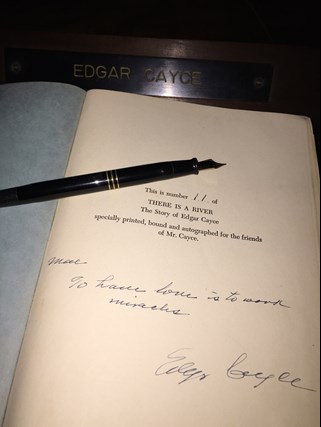 EDGAR CAYCE
This is number 11 of
THERE IS A RIVER
The Story of Edgar Cayce
specially printed, bound and autographed for the friends
of Mr. Cayce.
To have love is to work
miracles
Edgar Cayce